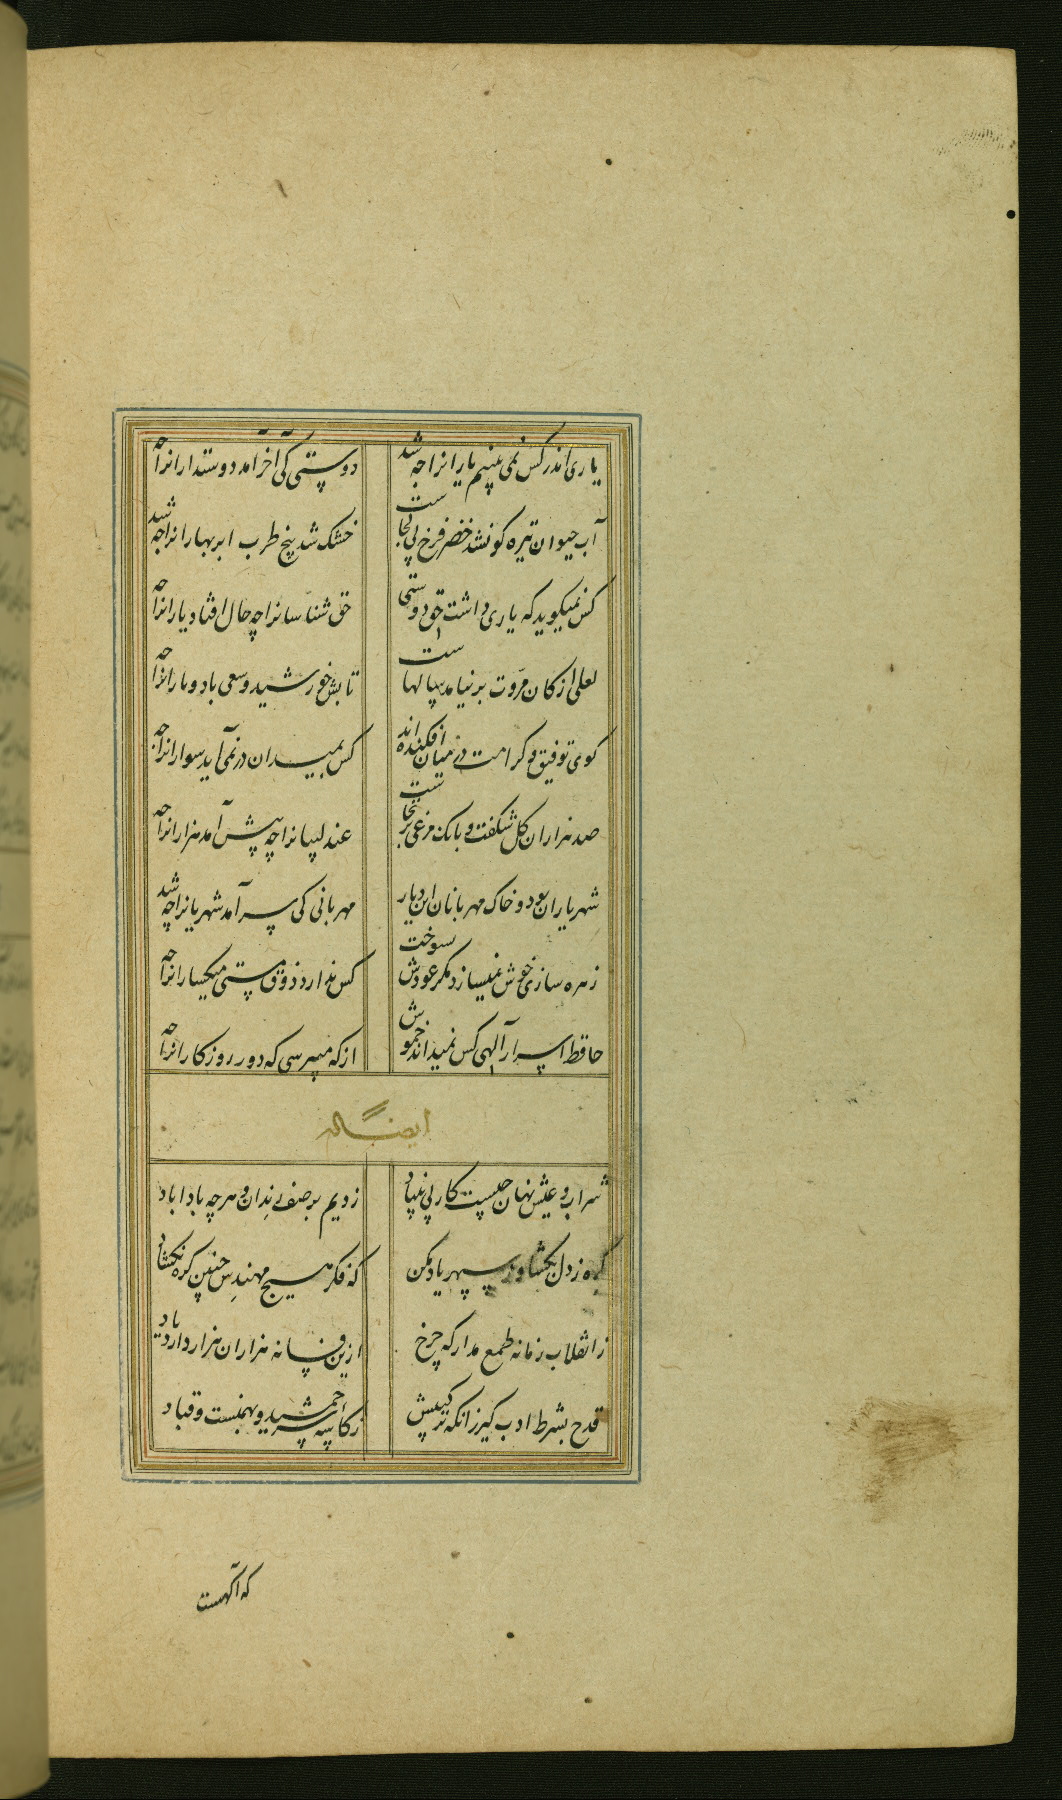 یاری اندر کس نمی بینیم یارانرا چه شد دوستی کی آخر آمد دوستدارانرا چه
آب حیوان تیره کون شد خضر فرخ پی کجاست خشک شد بیخ طرب ابر بهارانرا چه شد
کس نمیکوید که یاری داشت حق دوستی حق شناسانرا چه حال افتاد یارانرا چه
لعلی از کان مروت بر نیامد سالهاست تابش خورشید و سعی باد و بارانرا چه
کوی توفیق و کرامت در میان افکنده اند کس بمیدان در نمی آید سوارانرا چه
صد هزاران کل شکفت و بانک مرغی بر نخاست عندلیبانرا چه پیش آمد هزارانرا چه
شهریاران بود و خاک مهربانان این دیار مهربانی کی سر آمد شهریارانرا چه شد
زهره سازی خوش نمیسازد مکر عودش سوخت کس ندارد ذوق مستی میکسارانرا چه
حافظ اسرار الهی کس نمیداند خموش از که میپرسی که دور روزکارانرا چه
ایضاً له
شراب و عیش نهان چیست کار بی بنیاد زدیم بر صف رندان و هرچه بادا باد
کره ز دل بکشا و ز سپهر یاد مکن که فکر هیچ مهندس چنین کره نکشاد
ز انقلاب زمانه طمع مدار که چرخ ازین فسانه هزاران هزار دارد یاد
قدح بشرط ادب کیر زانکه ترکیبش ز کاسه سر جمشید و بهمنست و قباد
که آکهست